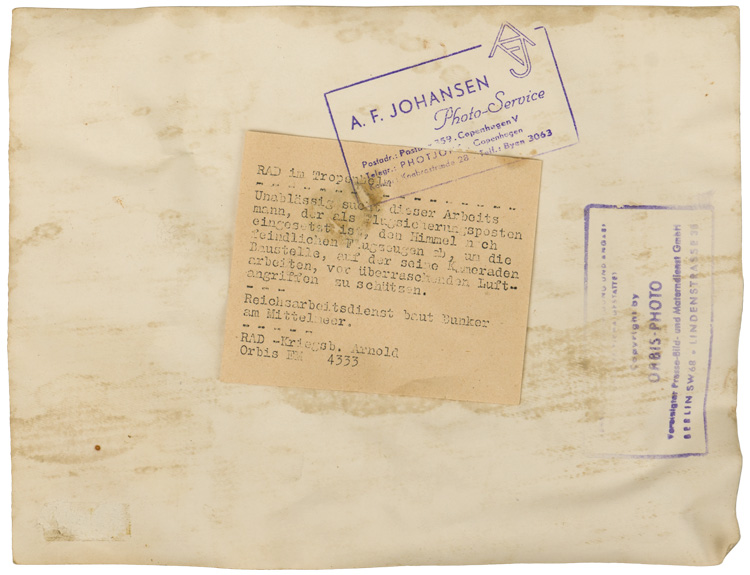 AFJ
A. F. JOHANSEN
Photo-Service
Postadr.: Postb 359. Copenhagen V
Telegr.: PHOTJO Copenhagen
Knabrostræde 28 Telf.: Byen 3063
RAD im Tropenhelm
Unablässig sucht dieser Arbeits
mann, der als Flugsicherungsposten
eingesetzt ist, den Himmel nach
feindlichen Flugzeugen ab, um die
Baustelle, auf der seine Kameraden
arbeiten, vor überraschenden Luft-
angriffen zu schützen.
Reichsarbeitsdienst baut Bunker
am Mittelmeer.
RAD -Kriegsb. Arnold
Orbis FM 4333
Copyright by
ORBIS-PHOTO
Vereinigter Presse-Bild- und Materndienst GmbH
BERLIN SW 68 • LINDENSTRASSE